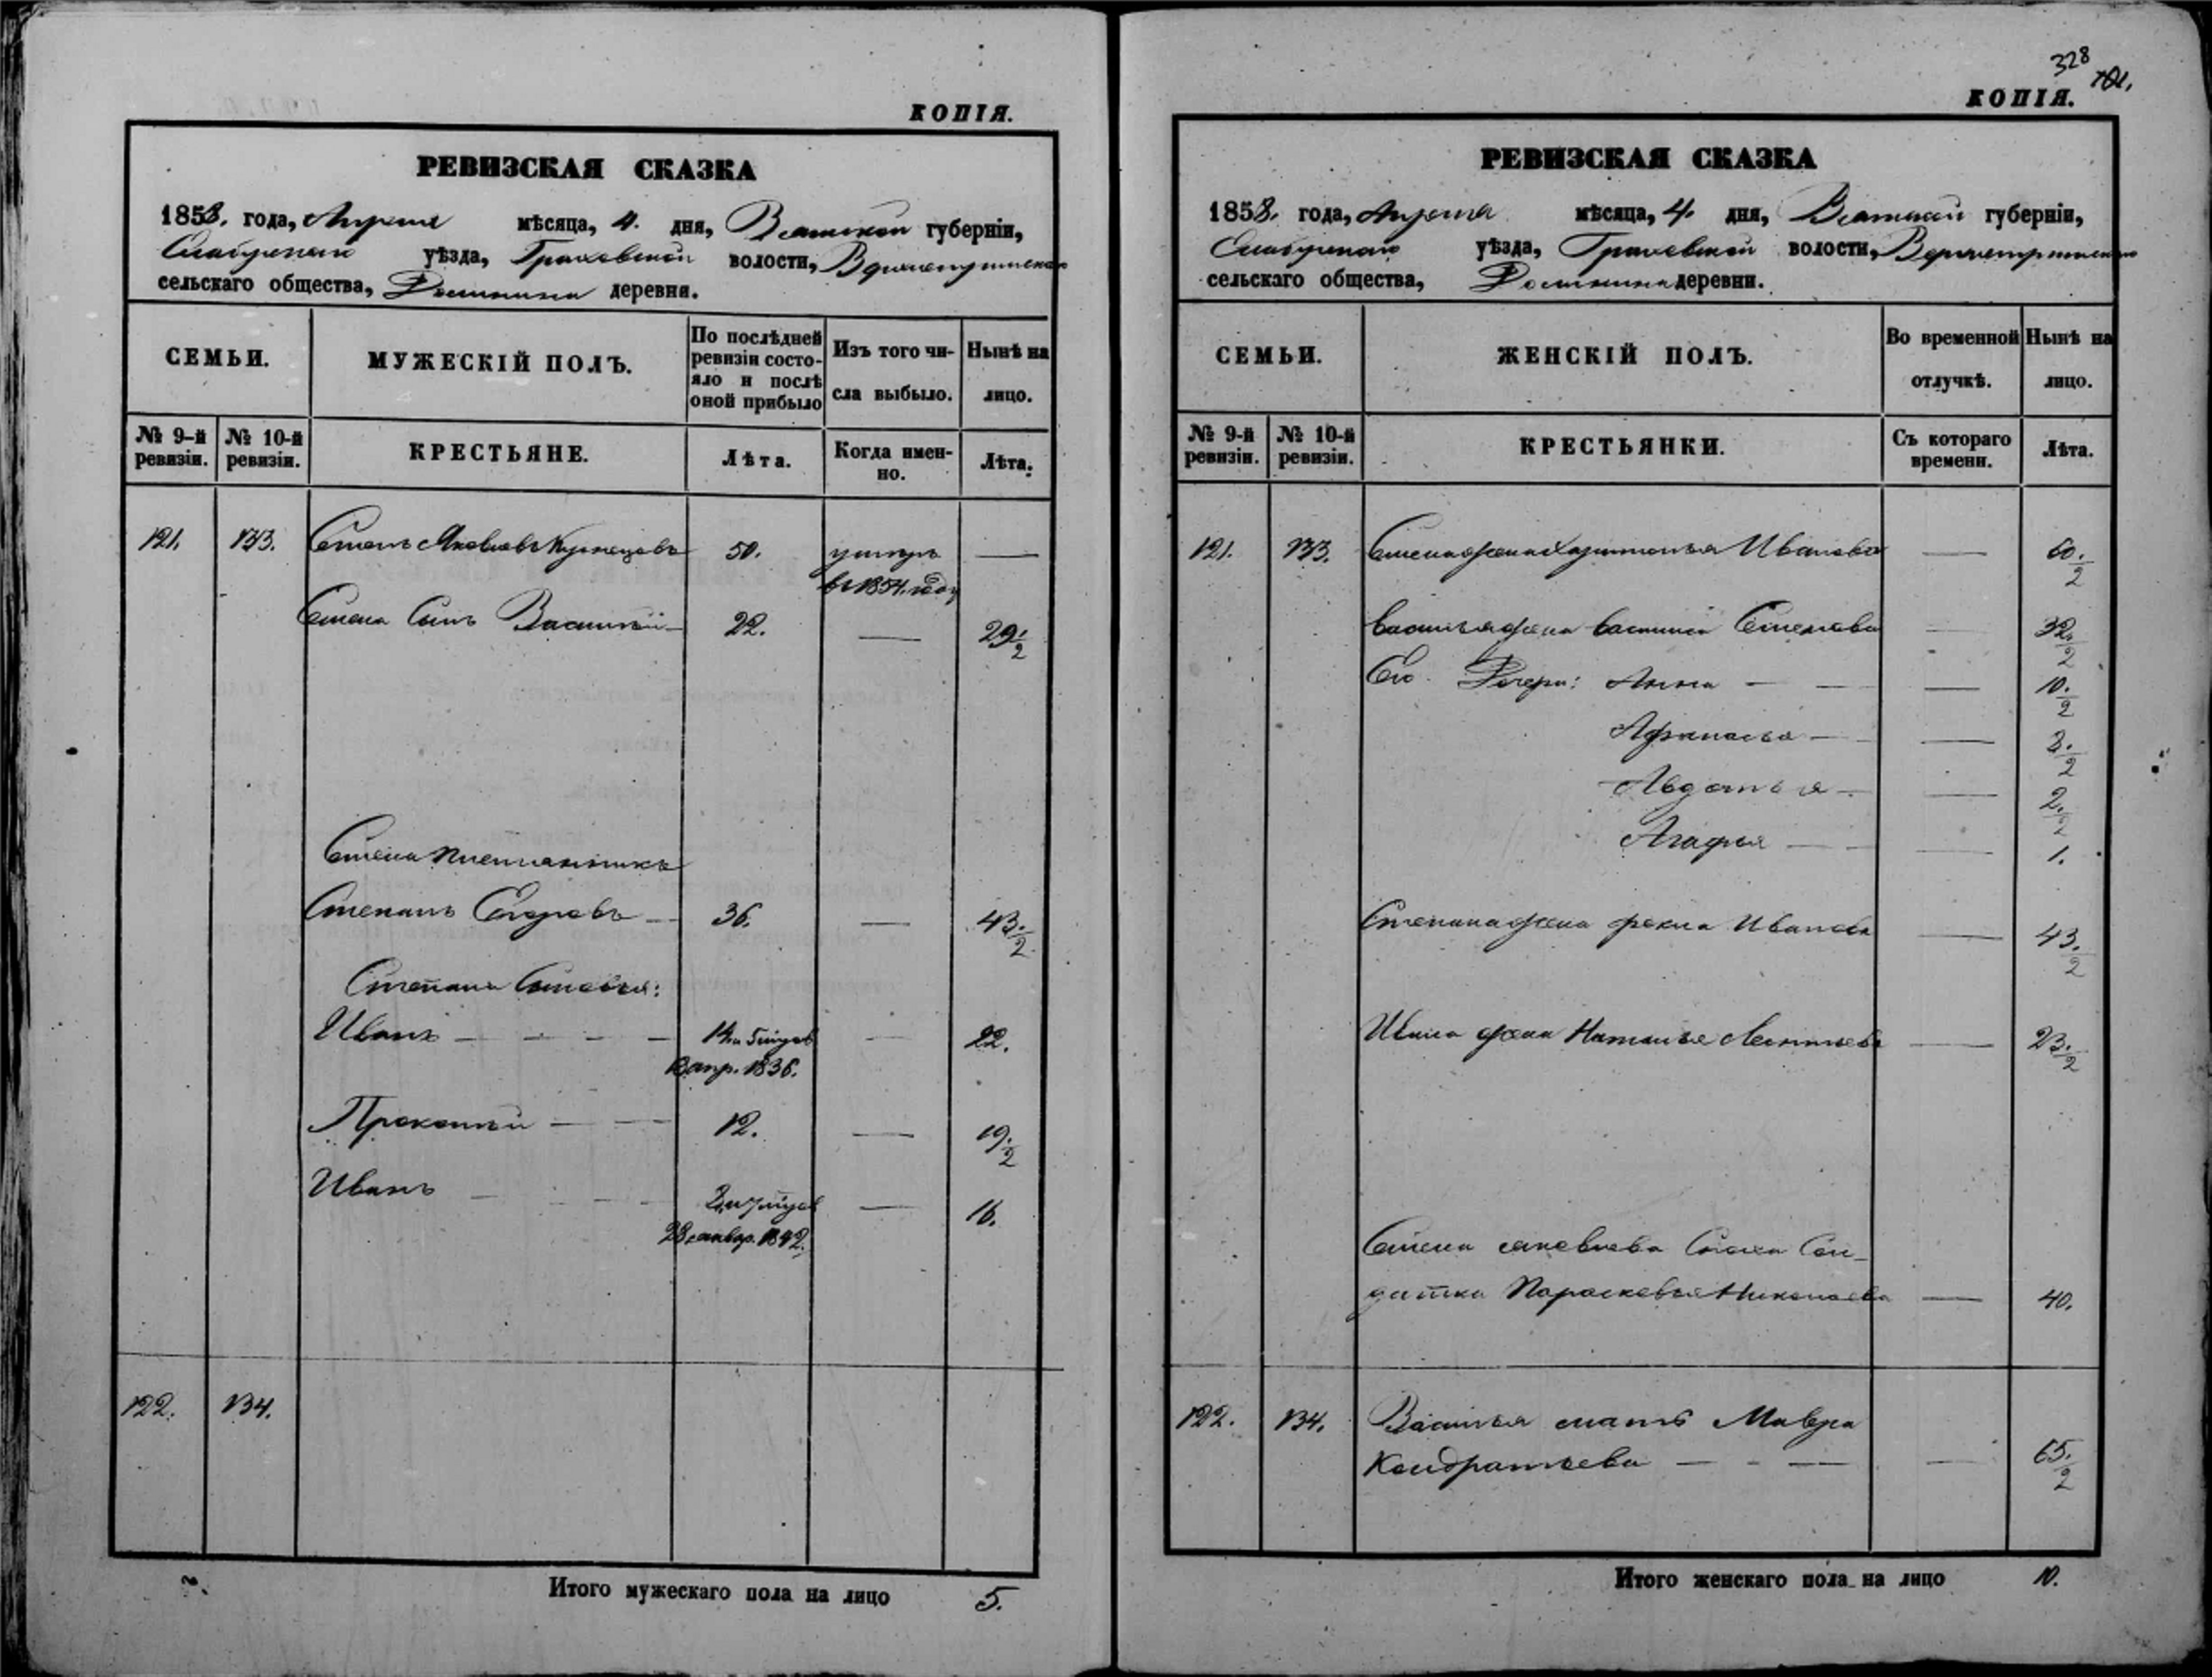 КОПІЯ.
РЕВИЗСКАЯ СКАЗКА
1858. года, Апреля мѣсяца, 4. дня, Вятской губерніи,
Елабужскаго уѣзда, Граховской волости,
сельскаго общества, деревни.
СЕМЬИ.
МУЖЕСКІЙ ПОЛЪ.
По послѣдней ревизіи состо-
яло и послѣ оной прибыло
Изъ того чи-
сла выбыло.
Нынѣ на
лицо.
№ 9-й ревизіи.
№ 10-й ревизіи.
КРЕСТЬЯНЕ.
Лѣта.
Когда имен-
но.
Лѣта.
121. 133. Семенъ Яковлевъ Кузнецовъ 50. умеръ —
въ 1854. году
Семена Сынъ Василій — 22. — 29 1/2
Семена племянникъ
Степанъ Егоровъ — 36. — 43. /2
Степана Сыновья:
Иванъ — — — — — 22.
апр. 1836.
Прокопій — — 12. — 19. /2
Иванъ — — — — 16.
28 январ. 1842.
122. 134.
Итого мужескаго пола на лицо 5.
328
101.
КОПІЯ.
РЕВИЗСКАЯ СКАЗКА
1858. года, Апреля мѣсяца, 4. дня, Вятской губерніи,
Елабужскаго уѣзда, Граховской волости,
сельскаго общества, деревни.
СЕМЬИ.
ЖЕНСКІЙ ПОЛЪ.
Во временной
отлучкѣ.
Нынѣ на
лицо.
№ 9-й ревизіи.
№ 10-й ревизіи.
КРЕСТЬЯНКИ.
Съ котораго
времени.
Лѣта.
121. 133. Семена жена Харитонья Иванова — 60. /2
Васильева жена Семенова — 32. /2
Его Дочери: Анна — — — 10. /2
Афанасья — — 3. /2
Авдотья — — 2. /2
Агафья — — — 1.
Степана жена Фекла Иванова — 43. /2
Ивана жена Наталья Леонтьева — 23. /2
Семена Яковлева Сноха Сол-
датка Парасковья Николаева — 40.
122. 134. Василья мать Мавра
Кондратьева — — — — 65. /2
Итого женскаго пола на лицо 10.